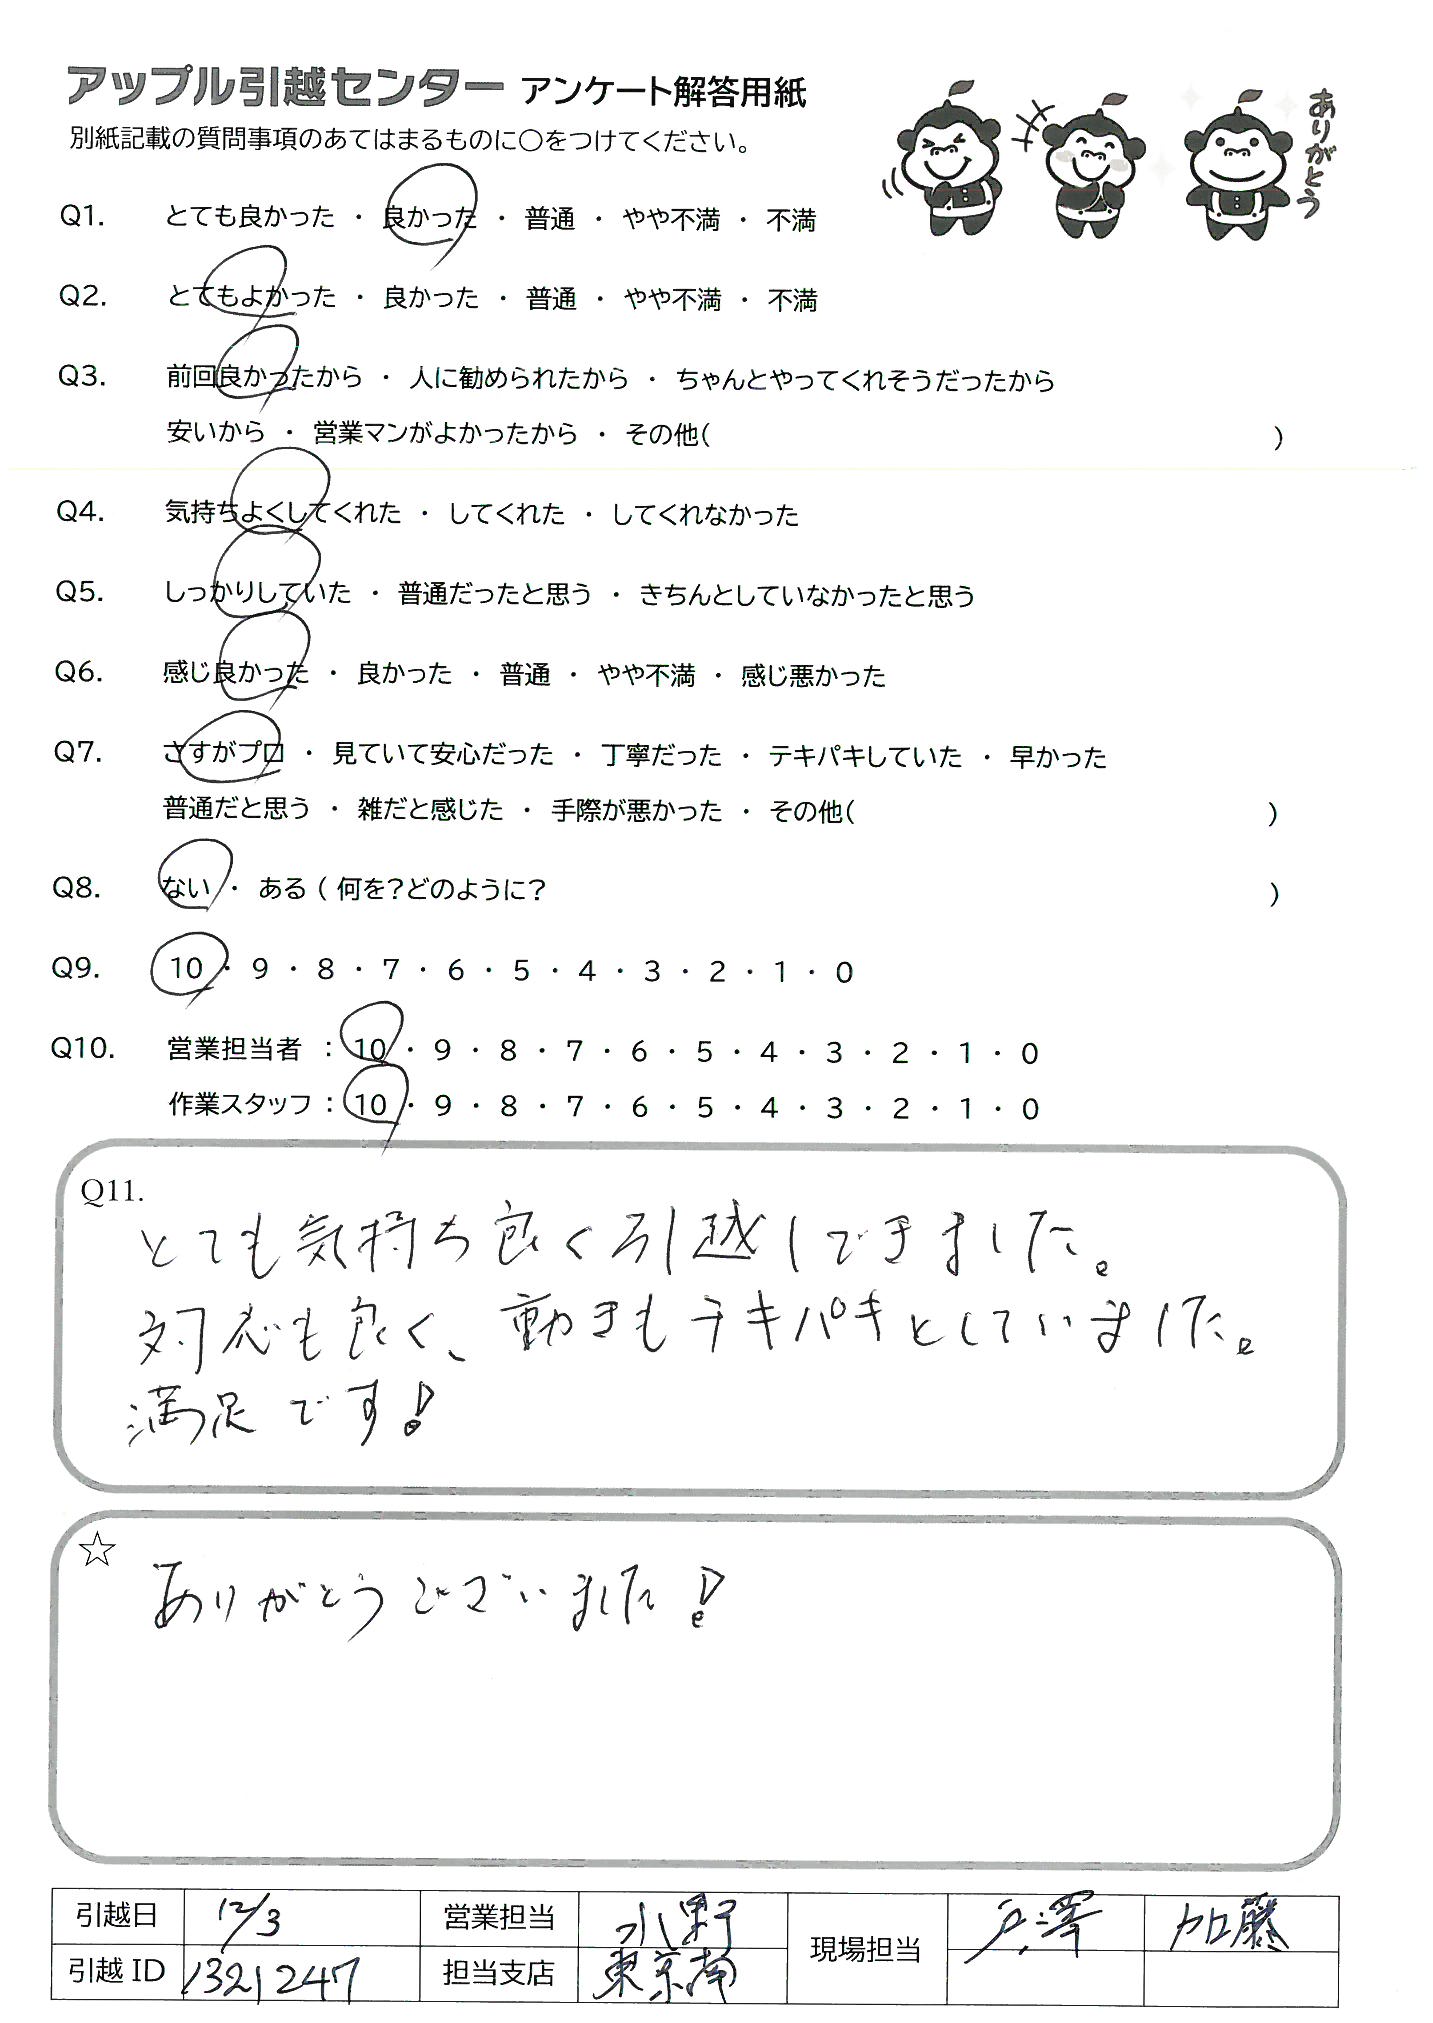 アップル引越センター アンケート解答用紙
別紙記載の質問事項のあてはまるものに○をつけてください。
ありがとう
Q1. とても良かった ・ 良かった ・ 普通 ・ やや不満 ・ 不満
Q2. とてもよかった ・ 良かった ・ 普通 ・ やや不満 ・ 不満
Q3. 前回良かったから ・ 人に勧められたから ・ ちゃんとやってくれそうだったから
安いから ・ 営業マンがよかったから ・ その他( )
Q4. 気持ちよくしてくれた ・ してくれた ・ してくれなかった
Q5. しっかりしていた ・ 普通だったと思う ・ きちんとしていなかったと思う
Q6. 感じ良かった ・ 良かった ・ 普通 ・ やや不満 ・ 感じ悪かった
Q7. さすがプロ ・ 見ていて安心だった ・ 丁寧だった ・ テキパキしていた ・ 早かった
普通だと思う ・ 雑だと感じた ・ 手際が悪かった ・ その他( )
Q8. ない ・ ある ( 何を?どのように? )
Q9. 10 ・ 9 ・ 8 ・ 7 ・ 6 ・ 5 ・ 4 ・ 3 ・ 2 ・ 1 ・ 0
Q10. 営業担当者 : 10 ・ 9 ・ 8 ・ 7 ・ 6 ・ 5 ・ 4 ・ 3 ・ 2 ・ 1 ・ 0
作業スタッフ : 10 ・ 9 ・ 8 ・ 7 ・ 6 ・ 5 ・ 4 ・ 3 ・ 2 ・ 1 ・ 0
Q11.
とても気持ち良く引越しできました。
対応も良く、動きもテキパキとしていました。
満足です!
☆
ありがとうございました!
引越日 12/3 営業担当 水野 現場担当 戸澤 加藤
引越ID 1321247 担当支店 東京南